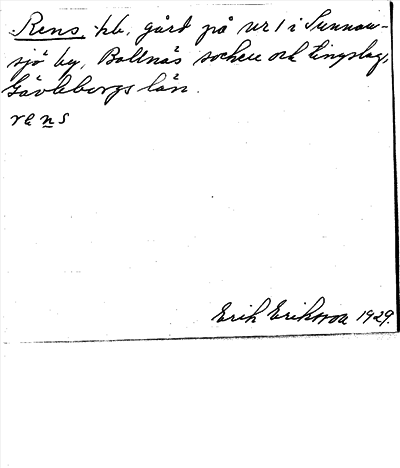 Rens, hb. gård på nr 1 i Sunnan-
sjö by, Bollnäs socken och tingslag,
Gävleborgs län.
rens
Erik Eriksson 1929.